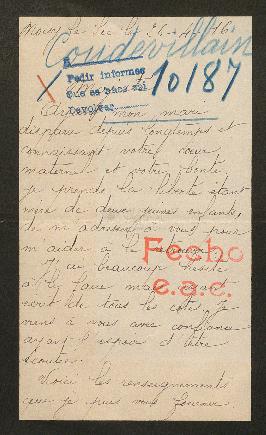 Mouy le 26 - 4 - 16
Coudevillain
X
Pedir informes
que se hace así
Devolver
10187
mon mari
disparu depuis longtemps et
connaissant votre cœur
maternel et votre bonté
je prends la liberté étant
mère de deux jeunes enfants,
de m'adresser à vous pour
m'aider à le retrouver.
Fecho
e.a.c.
J'ai beaucoup hésité
à le faire mais ayant
écrit de tous les côtés je
viens à vous avec confiance
ayant l'espoir d'être
écoutée.
Voici les renseignements
que je puis vous fournir